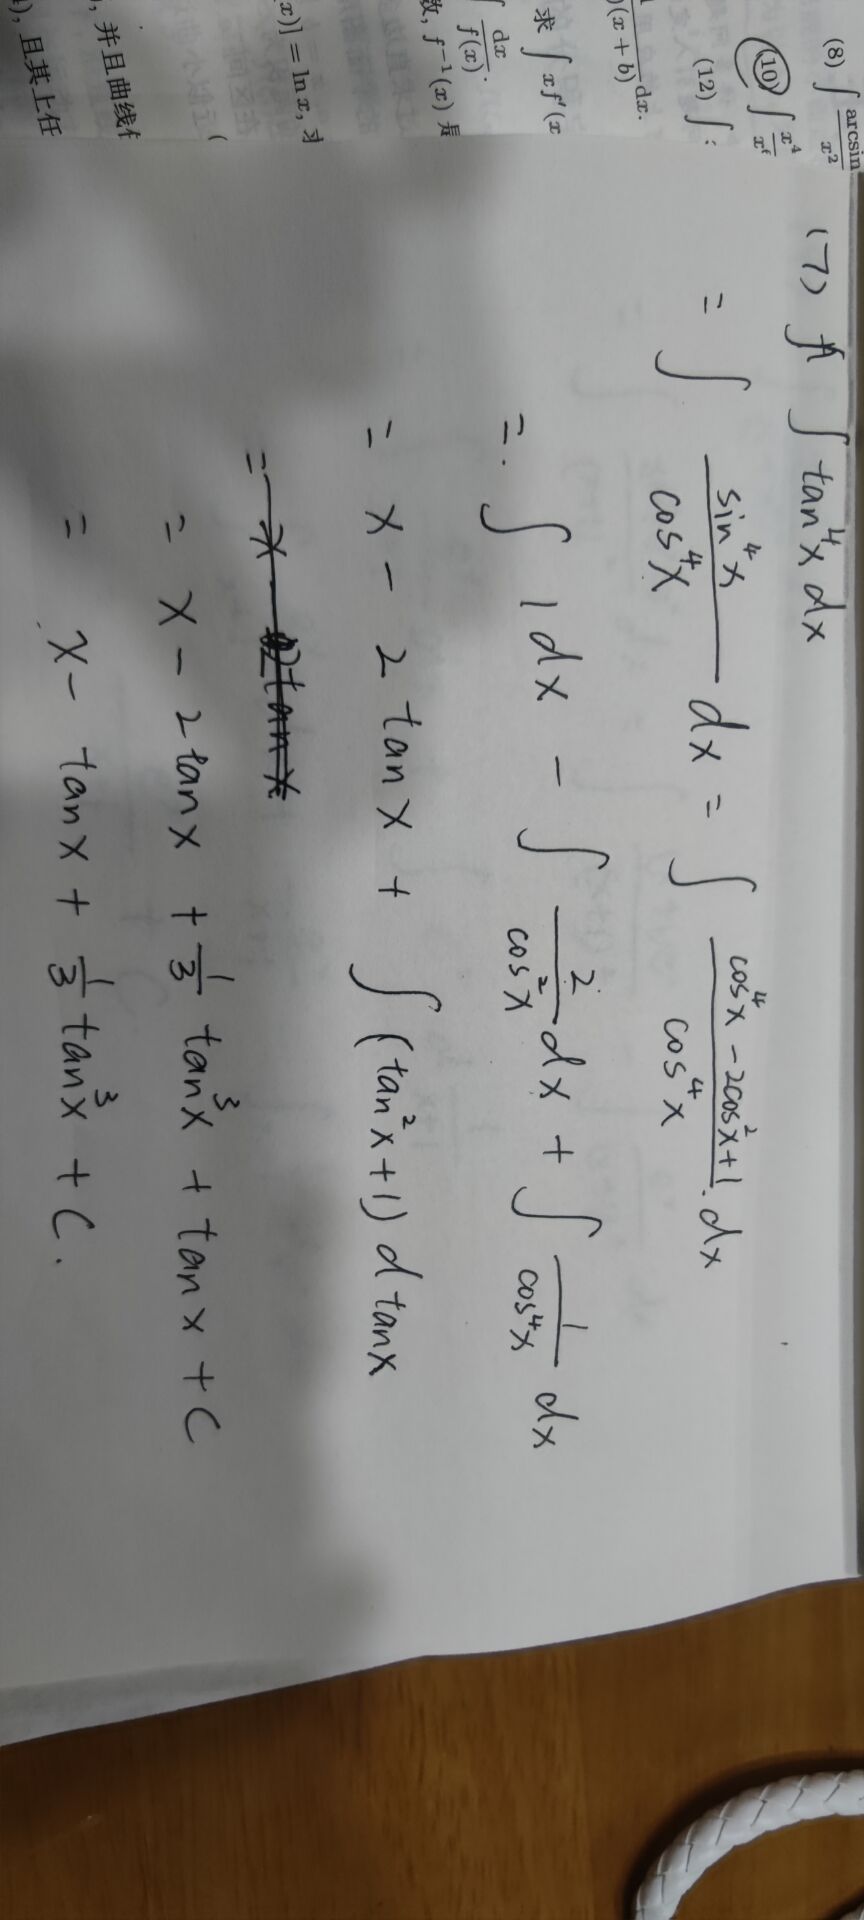 (8) ∫ arcsin / x²
(10) ∫ x⁴
(12) ∫
(x + b) dx.
求 ∫ xf′(x
∫ dx / f(x).
数, f⁻¹(x) 是
x)] = ln x, 求
, 并且曲线
), 且其上任
(7) ∫ tan⁴x dx
= ∫ sin⁴x / cos⁴x dx = ∫ cos⁴x - 2cos²x+1 / cos⁴x dx
= ∫ 1 dx - ∫ 2 / cos²x dx + ∫ 1 / cos⁴x dx
= x - 2 tan x + ∫ (tan²x+1) d tan x
= x - 2tan x
= x - 2tan x + 1/3 tan³x + tan x + C
= x - tan x + 1/3 tan³x + C.